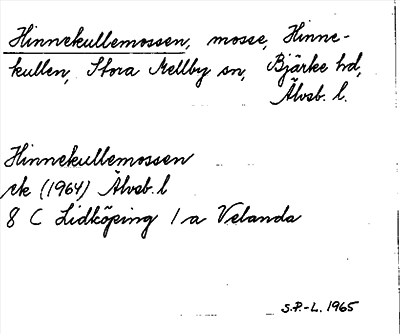 Hinnekullemossen, mosse, Hinne-
kullen, Stora Mellby sn, Bjärke hd,
Älvsb. l.
Hinnekullemossen
ek (1964) Älvsb. l
8 C Lidköping 1 a Velanda
S.P.-L. 1965